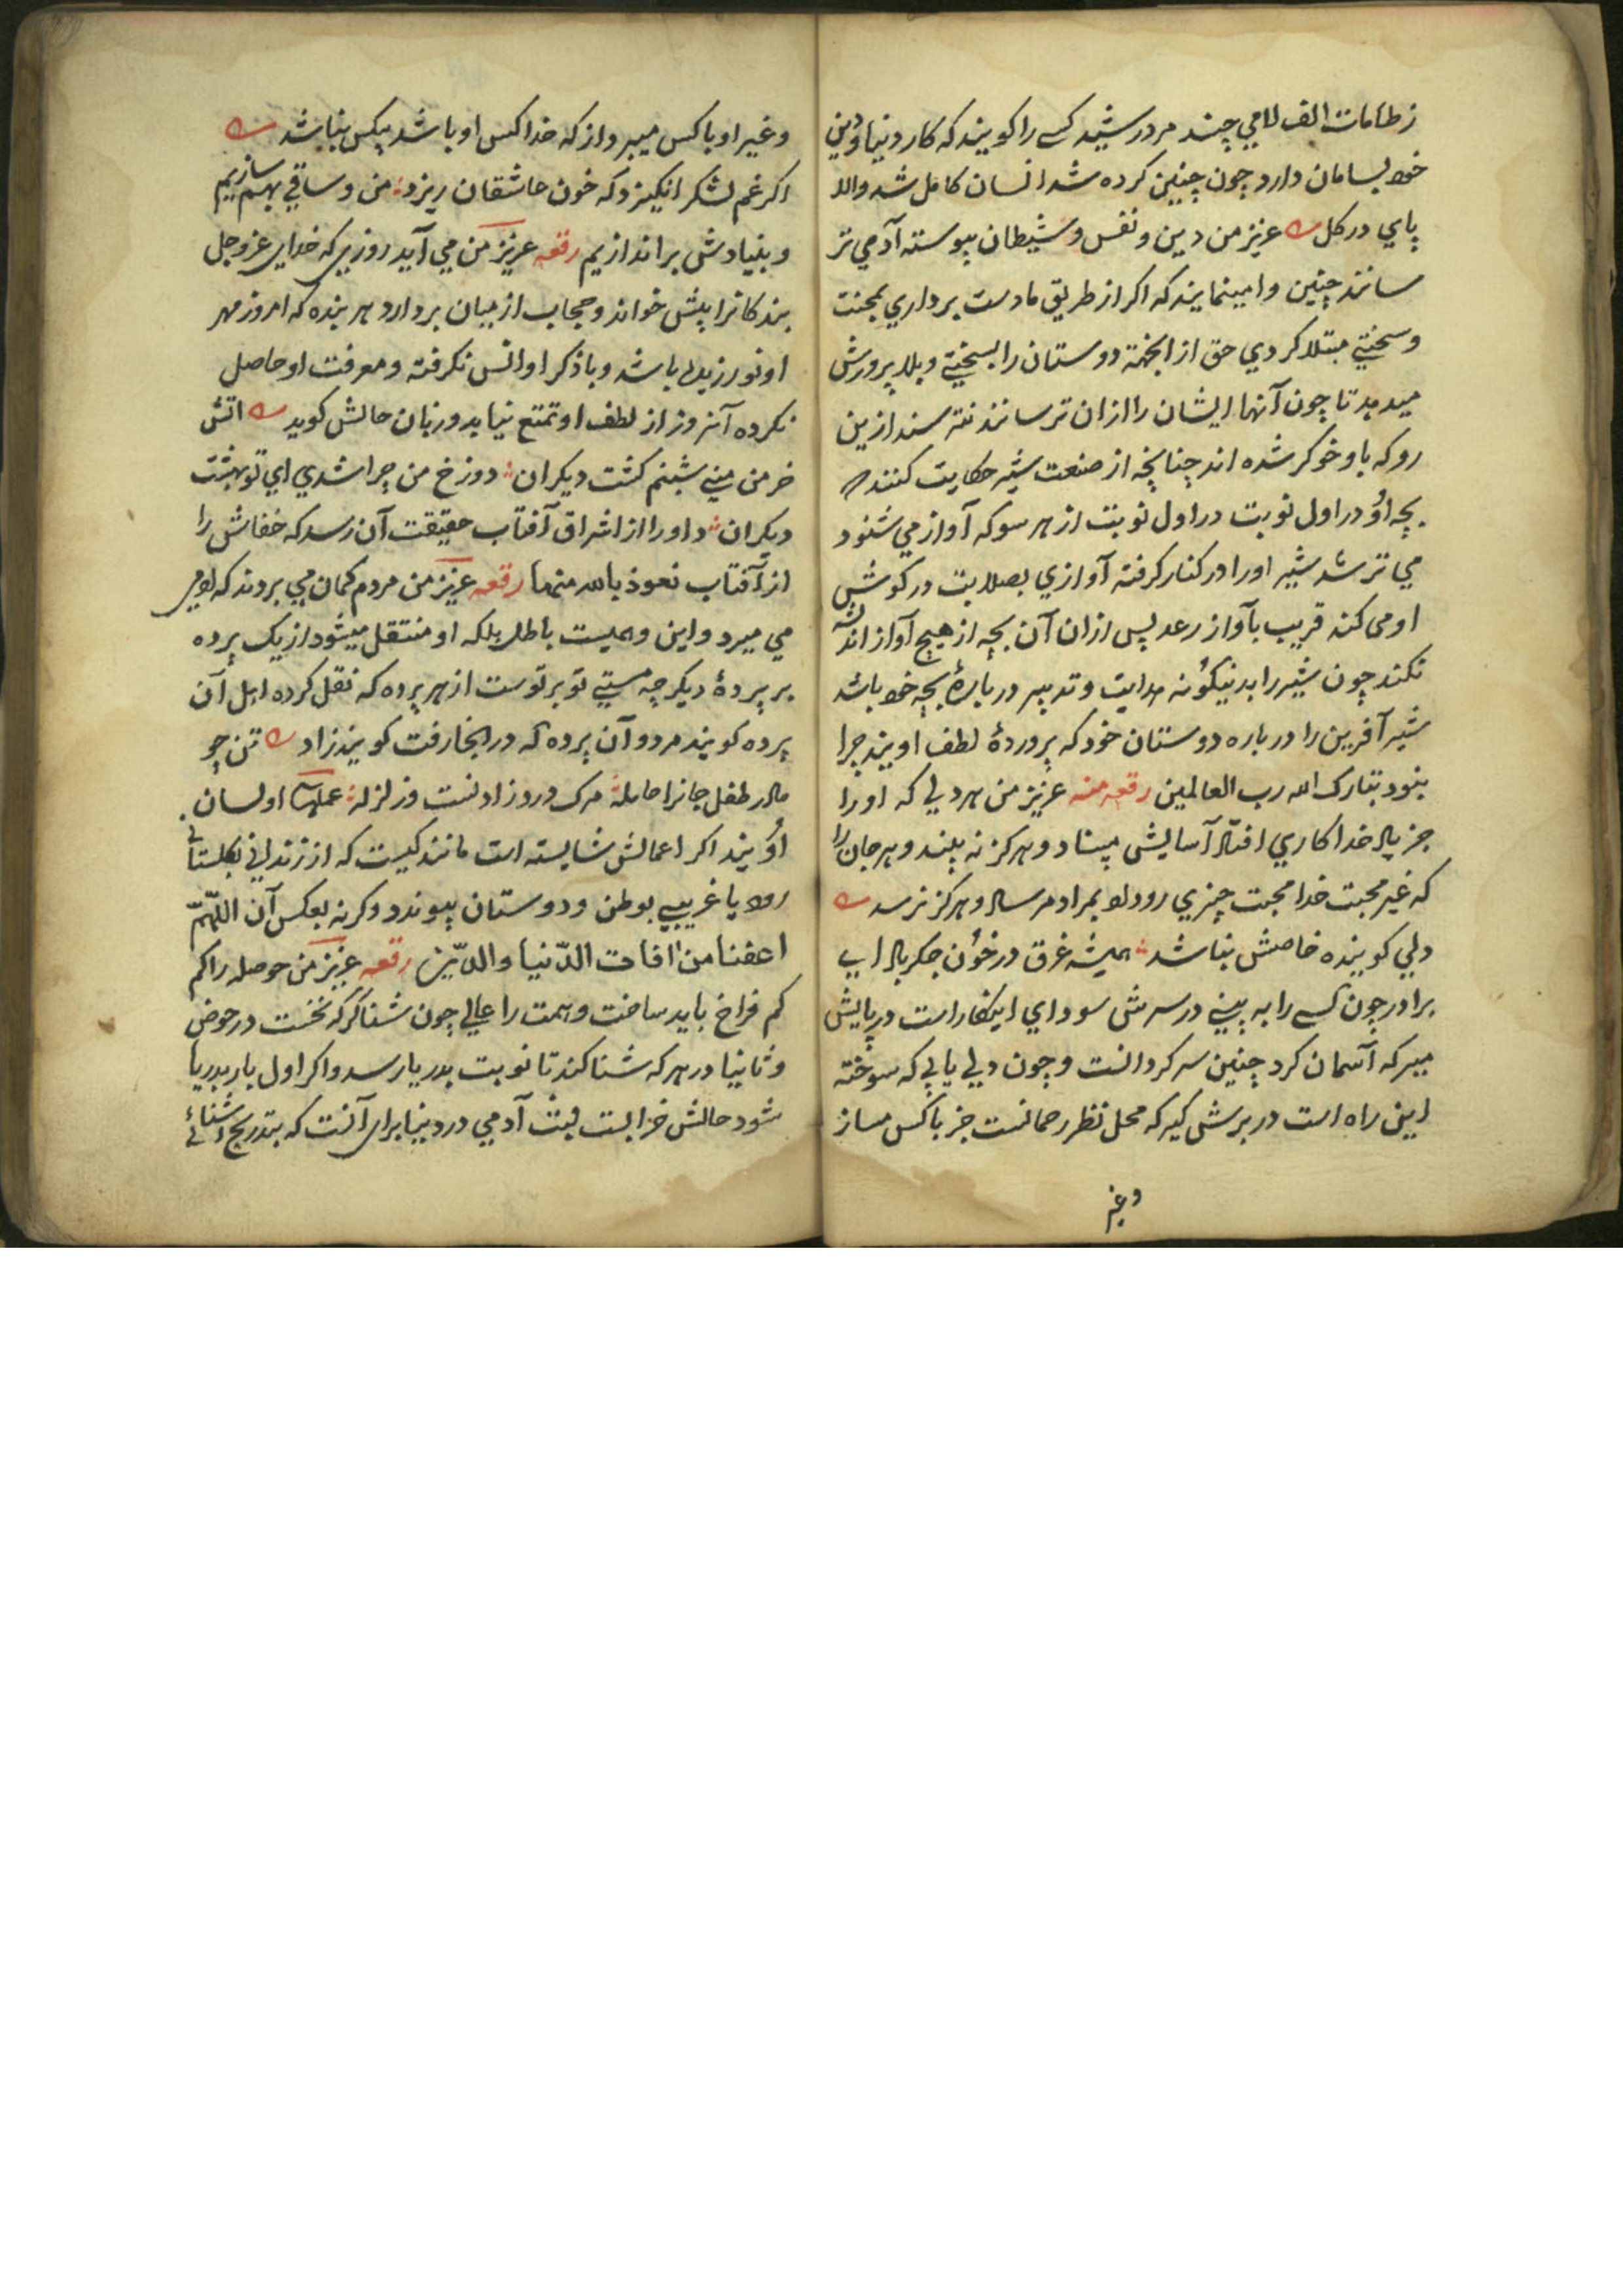 ز طامات الف لامی چند مرد رشید کسے را کویند که کار دنیا و دین
خود بسامان دارد چون چنین کرده شد انسان کامل شد والا
پای در کل عزیز من دین و نفس و شیطان پیوسته آدمی تر
سانند چنین وا مینمایند که اکر از طریق ما دست برداری بمحنت
و سختی مبتلا کردی حق از انجهة دوستان را بسختی و بلا پرورش
میدهد تا چون آنها ایشان را ازان ترسانند نترسند ازین
رو که باو خوکر شده اند چنانچه از صنعت شیر حکایت کنند که
بچه او در اول نوبت در اول نوبت از هر سو که آواز می شنود
می ترسد شیر او را در کنار کرفته آوازی بصلابت در کوش
او می کند قریب بآواز رعد پس ازان آن بچه از هیچ آواز اندیشه
نکند چون شیر را بدینکونه هدایت و تدبیر در بارهٔ بچه خود باشد
شیر آفرین را در باره دوستان خود که پروردهٔ لطف اویند چرا
نبود تبارک الله رب العالمین رقعه منه عزیز من هر دلی که او را
جز یاد خدا کاری افتاد آسایش مبیناد و هرکز نه بیند و هر جان را
که غیر محبت خدا محبت چیزی رود او بمراد مرساد و هرکز نرسد
دلی کو بنده خاصش نباشد همیشه غرق در خون جکر باد ای
برادر چون کسے را به بینی در سرش سودای اینکار است در پایش
میر که آسمان کرد چنین سر کردانست و چون دلی یابی که سوخته
این راه است در برش کیر که محل نظر رحمانست جز باکس مساز
و غیر
و غیر او باکس میرداز که خدا کس او باشد بیکس نباشد
اکر غم لشکر انکیزد که خون عاشقان ریزد من و ساقی بهم سازیم
و بنیادش براندازیم رقعه عزیز من می آید روزی که خدای عز و جل
بندکانرا پیش خواند و حجاب از میان بردارد هر بنده که امروز مهر
او نورزیده باشد و با ذکر او انس نکرفته و معرفت او حاصل
نکرده آنروز از لطف او تمتع نیابد و زبان حالش کوید آتش
خرمن منی شبنم کشت دیکران دوزخ من چرا شدی ای تو بهشت
دیکران و او را از اشراق آفتاب حقیقت آن رسد که خفاش را
از آفتاب نعوذ بالله منها رقعه عزیز من مردم کمان می بروند که آدمی
می میرد و این وهمیست باطل بلکه او منتقل میشود از یک پرده
بر پردهٔ دیکر چه هستی تو بر توست از هر پرده که نقل کرده اهل آن
پرده کویند مرد و آن پرده که در انجا رفت کویند زاد تن چو
مادر طفل جانرا حامله مرک درد زادنست و زلزله عملها اولسان
اویند اکر اعمالش شایسته است مانند کیست که از زندانی بکلستانی
رود یا غریبی بوطن و دوستان پیوندد و کرنه بعکس آن اللّهمّ
اعفنا من افات الدّنیا والدّین رقعه عزیز من حوصله را کم
کم فراخ باید ساخت و همت را عالی چون شناکر که نخست در حوض
و ثانیا در هر که شنا کند تا نوبت بدریا رسد و اکر اول بار بدریا
شود حالش خرابست لبث آدمی در دنیا برای آنست که بتدریج آشنائے